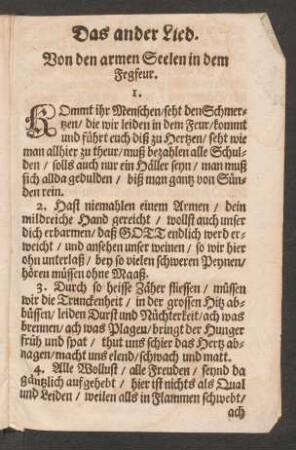 Das ander Lied.
Von den armen Seelen in dem
Fegfeur.
1.
KOmmt ihr Menschen/seht den Schmer-
tzen/ die wir leiden in dem Feur/kommt
und führt euch diß zu Hertzen/ seht wie
man allhier zu theur/muß bezahlen alle Schul-
den / solls auch nur ein Häller seyn/ man muß
sich allda gedulden / biß man gantz von Sün-
den rein.
2. Hast niemahlen einem Armen / dein
mildreiche Hand gereicht / wollst auch unser
dich erbarmen/ daß GOTT endlich werd er-
weicht / und ansehen unser weinen/ so wir hier
ohn unterlaß/ bey so vielen schweren Peynen/
hören müssen ohne Maaß.
3. Durch so heisse Zäher fliessen / müssen
wir die Trunckenheit / in der grossen Hitz ab-
büssen/ leiden Durst und Nüchterkeit/ach was
brennen/ach was Plagen/ bringt der Hunger
früh und spat / thut uns schier das Hertz ab-
nagen/macht uns elend/schwach und matt.
4. Alle Wollust / alle Freuden / seynd da
gäntzlich auffgehebt / hier ist nichts als Qual
und Leiden / weilen alls in Flammen schwebt/
ach